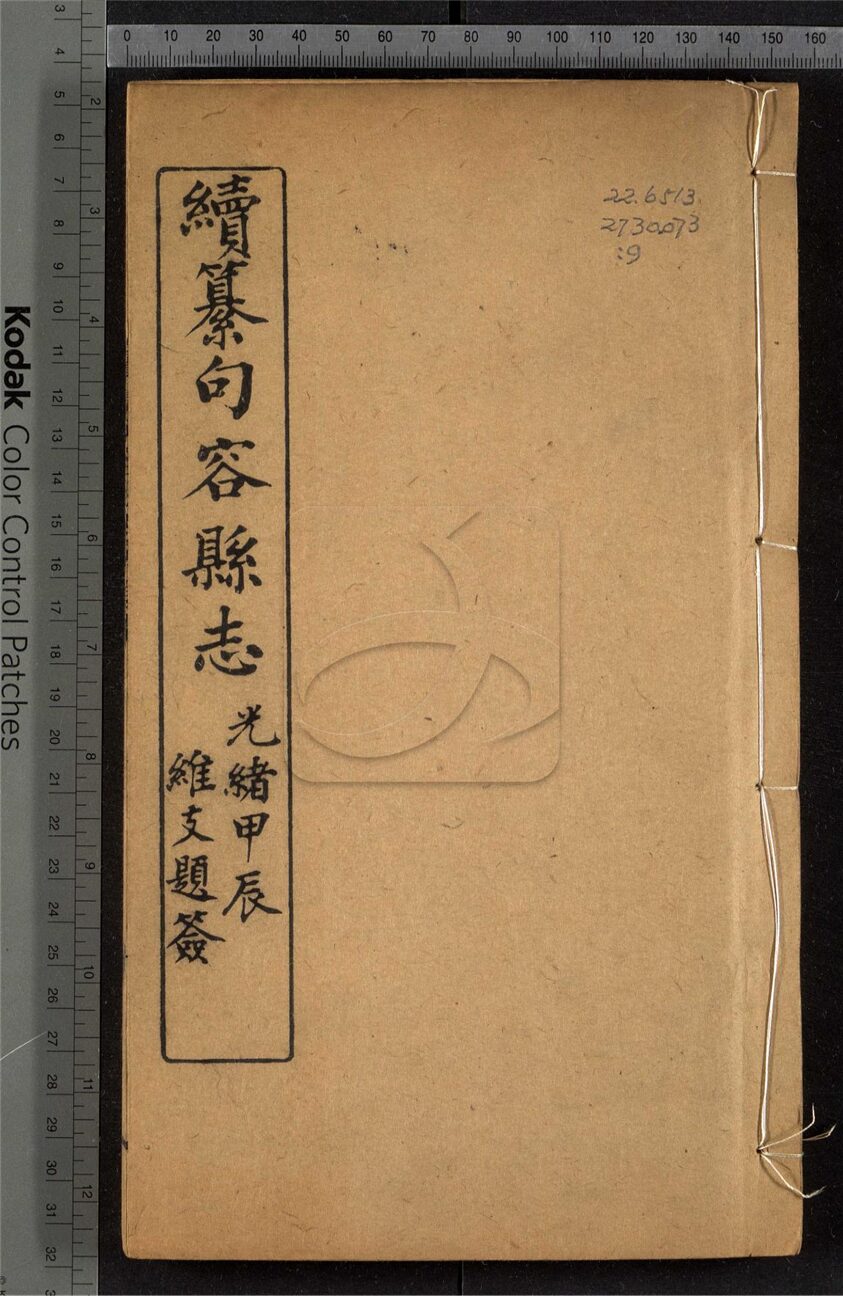 續纂句容縣志
光緒甲辰
維支題簽
22.6513
273.0073
:9
Kodak Color Control Patches
0 10 20 30 40 50 60 70 80 90 100 110 120 130 140 150 160
3 4 5 6 7 8 9 10 11 12 13 14 15 16 17 18 19 20 21 22 23 24 25 26 27 28 29 30 31 32
2 3 4 5 6 7 8 9 10 11 12